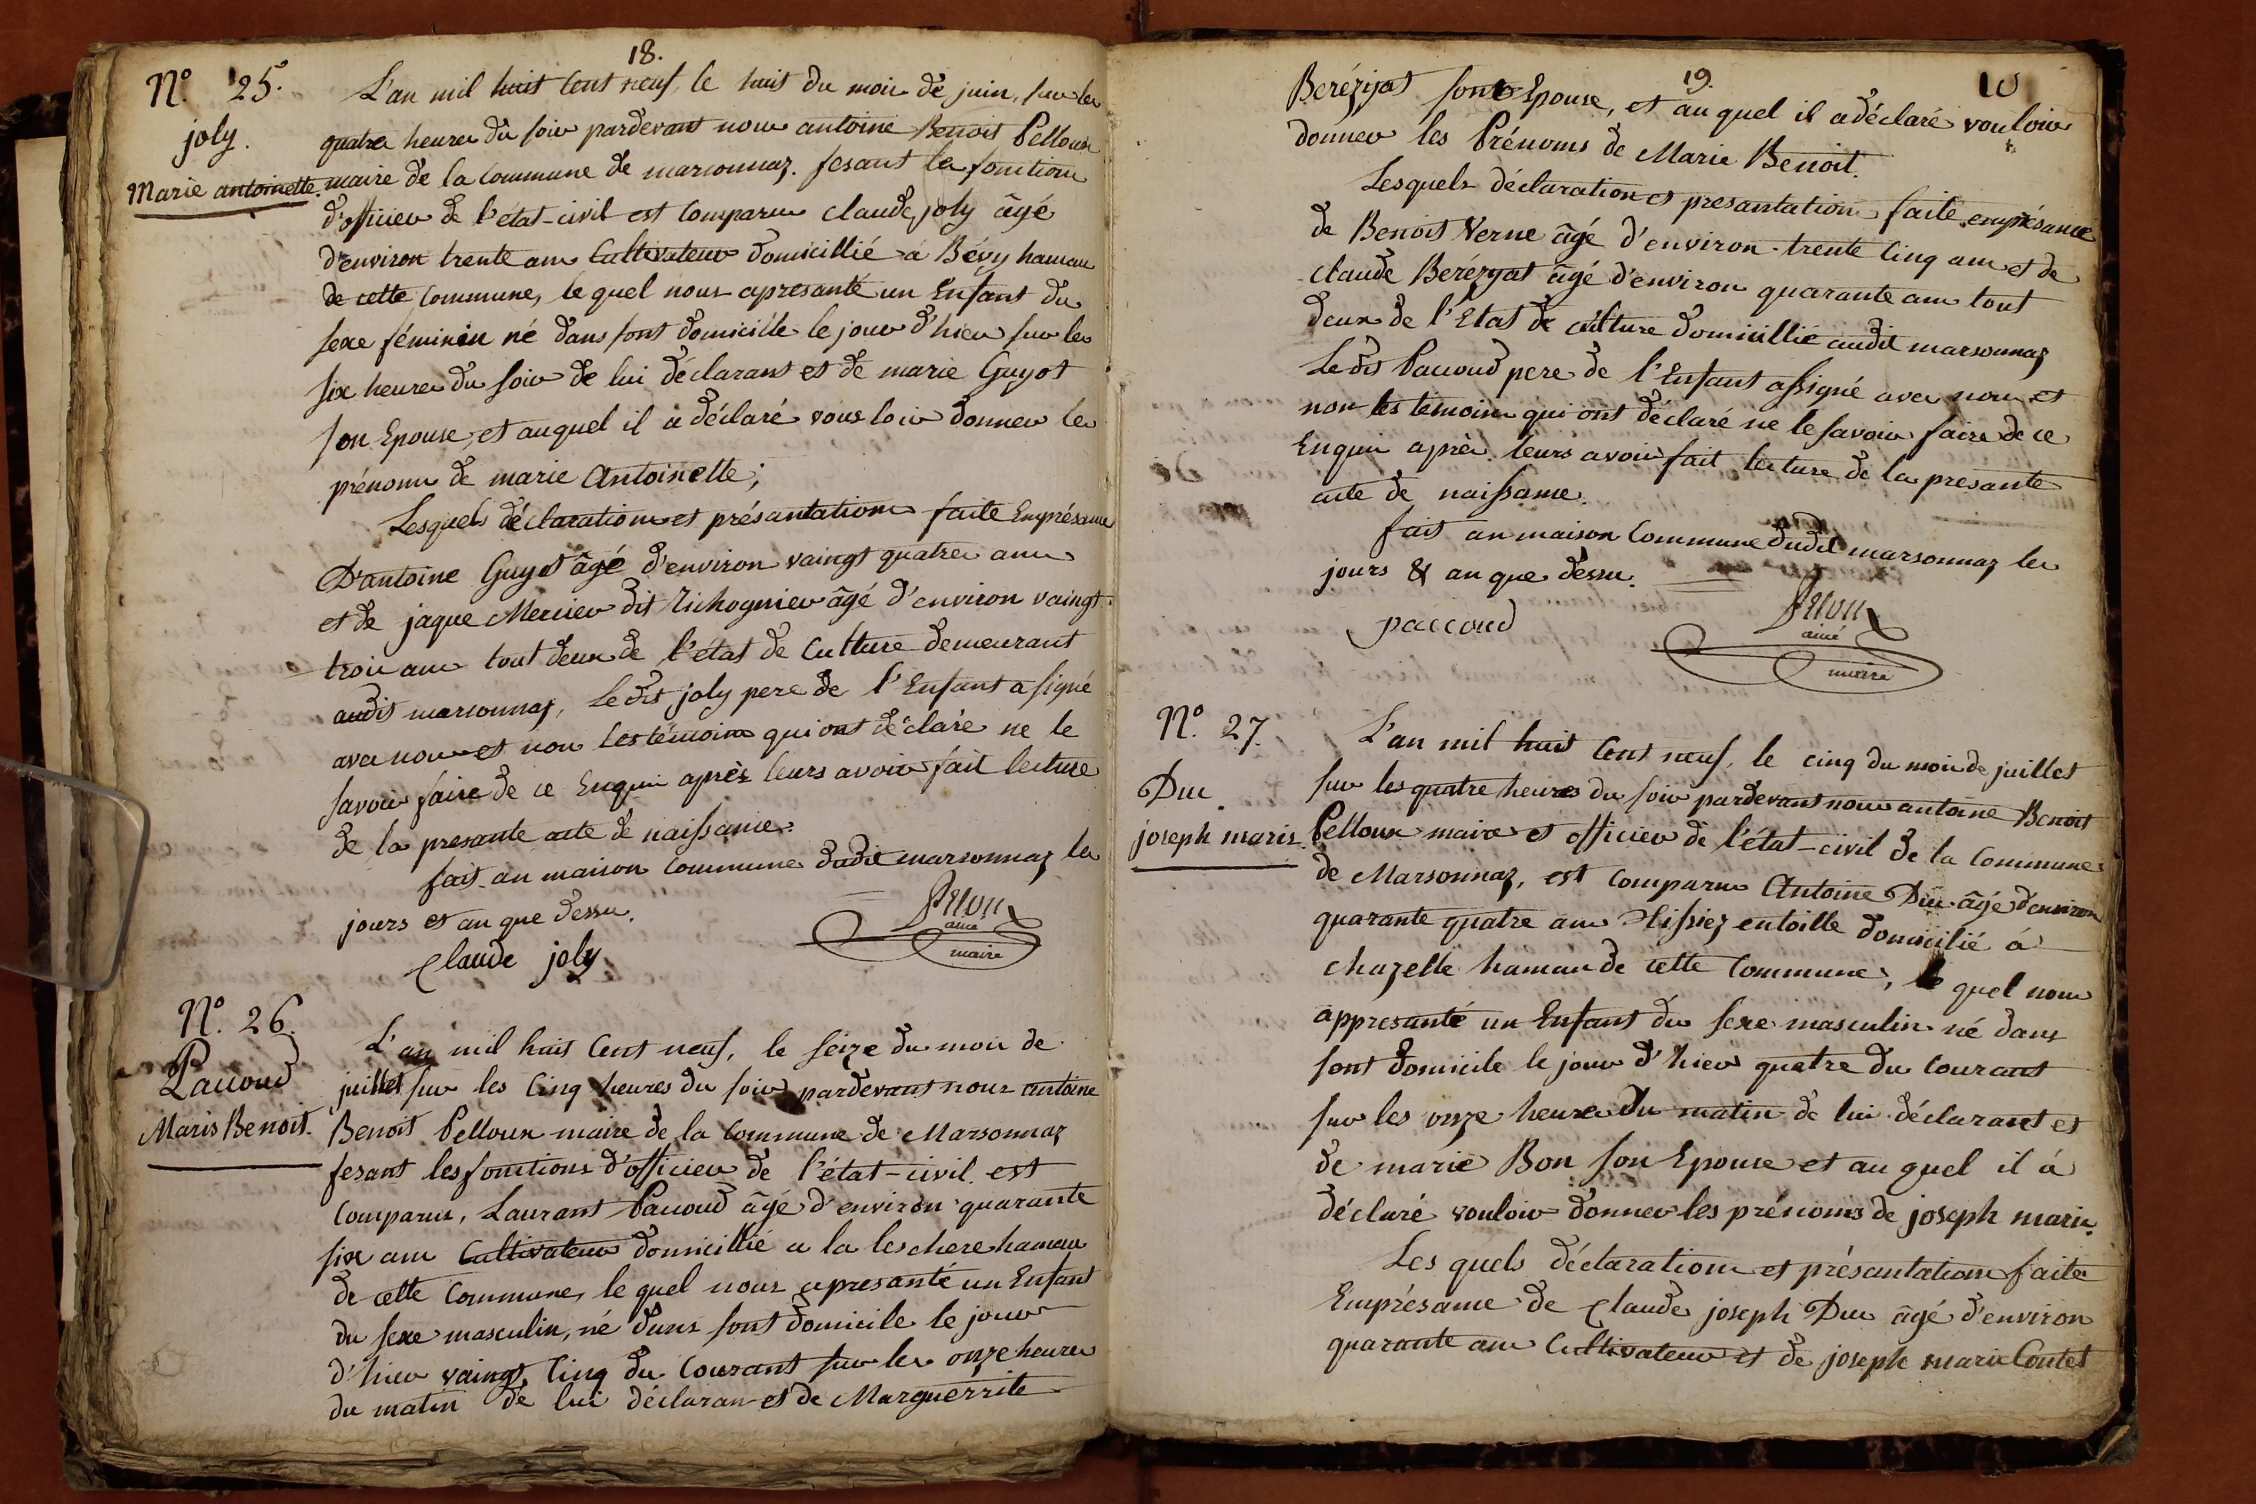 18.
N.º 25.
joly.
Marie antoinette.
L'an mil huit Cent neuf, le huit du mois de juin, sur les
quatre heures du soir pardevant nous antoine Benoit Pelloux
maire de la Commune de marsonnaz. fesant les fonctions
d'officier de l'état-civil est Comparu Claude joly âgé
d'environ trente ans Cultivateur domicillié à Bévy hameau
de cette Commune, le quel nous apresanté un Enfant du
sexe féminin né dans sont domicille le jour d'hier sur les
six heures du soir de lui déclarant et de marie Guyot
son Epouse, et auquel il à déclaré vous loir donner les
prénoms de marie Antoinette;
Lesquels déclaration et présantation faite Emprésance
D'antoine Guyot âgé d'environ vaingt quatre ans
et de jaque Mercier dit Richognier âgé d'environ vaingt
trois ans tout deux de l'état de Culture demeurant
audit marsonnaz, Le dit joly pere de l'Enfant a signé
avec nous et non les témoins qui ont déclaré ne le
savoir fáire de ce Enquis après leurs avoir fait lecture
de la presante acte de naissance.
fait an maison Commune dudit marsonnaz les
jours et an que dessu.
Claude joly
Pelloux
ainé
maire
N.º 26.
Paccoud
Marie Benoit.
L'an mil huit Cent neuf, le seize du mois de
juillet sur les Cinq heures du soir pardevant nous antoine
Benoit Pelloux maire de la Commune de Marsonnaz
fesant les fonctions d'officier de l'état-civil. est
Comparu, Laurant Paccoud âgé d'environ quarante
six ans Cultivateur domicillié a la leschere hameau
de cette Commune, le quel nous apresanté un Enfant
du sexe masculin, né dans sont domicile le jour
d'hier vaingt Cinq du Courant sur les onze heures
du matin de lui déclaran et de Marguerrite
19.
10
Berézijat sont Epouse, et auquel il a déclaré vouloir
donner les Prénoms de Marie Benoit.
Lesquels déclaration et presantation faite emprésance
de Benoit Verne âgé d'environ trente Cinq ans et de
Claude Berézyat âgé d'environ quarante ans tout
deux de l'Etat de culture domicillié audit marsonnaz
Ledit Paccoud pere de l'Enfant assigné avec nous et
non les temoins qui ont déclaré ne le savoir faire de ce
Enquis après leurs avoir fait lecture de la presante
acte de naissance.
fait an maison Commune dudit marsonnaz les
jours & an que dessu.
paccoud
Pelloux
ainé
maire
N.º 27.
Duc.
joseph marie
L'an mil huit Cent neuf, le cinq du mois de juillet
sur les quatre heures du soir pardevant nous antoine Benoit
Pelloux maire et officier de l'état-civil de la Commune
de Marsonnaz, est Comparu Antoine Duc âgé d'environ
quarante quatre ans Tissiez entoille domicilié á
chazelle hameau de cette Commune, le quel nous
appresanté un Enfant du sexe masculin né dans
sont domicile le jour d'hier quatre du Courant
sur les onze heures du matin de lui déclarant et
de marie Bon son Epouse et au quel il à
déclaré vouloir donner les prénoms de joseph marie.
Les quels déclaration et présantation faite
Emprésance de Claude joseph Duc âgé d'environ
quarante ans Cultivateur et de joseph marie Contet